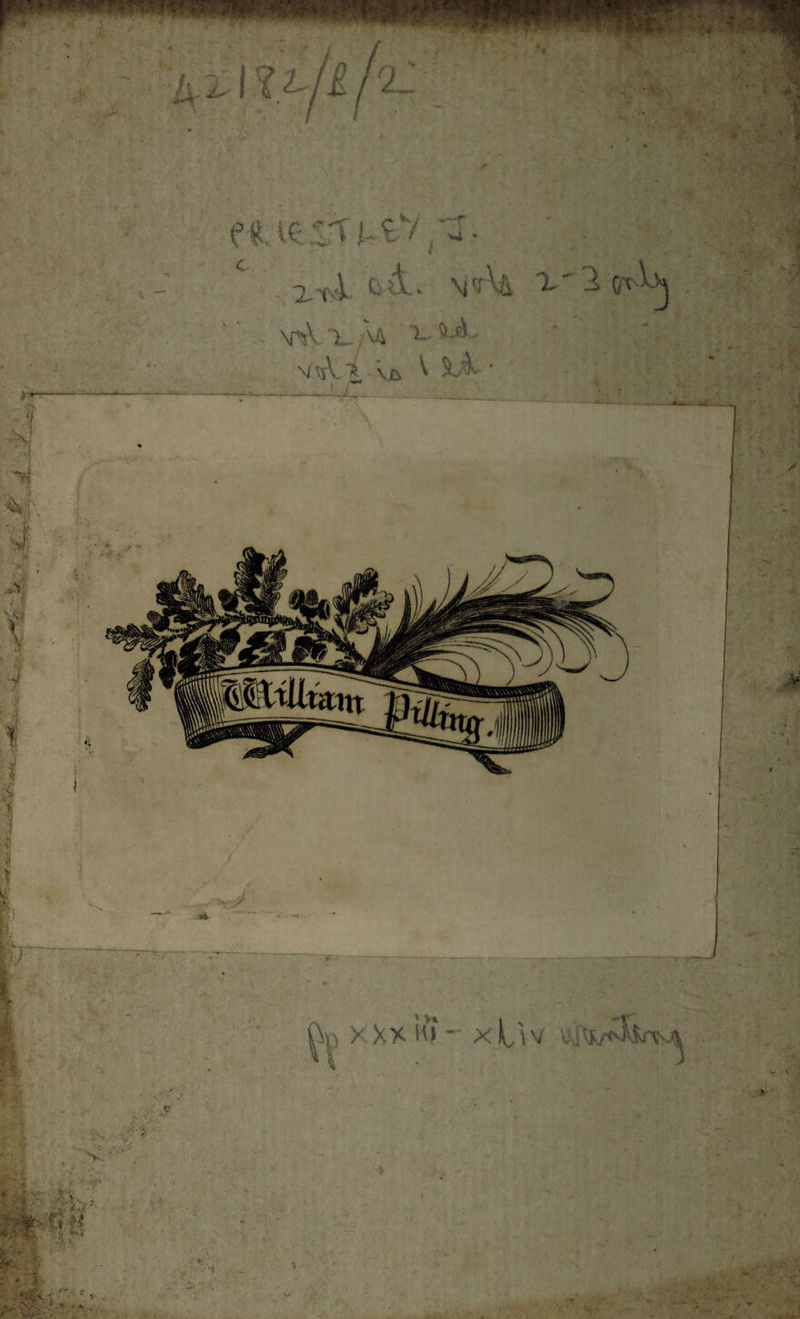 42172/B/2
PRIESTLEY, J.
2nd ed. vols 2-3 only
vol 2 is 2 ed.
vol 3 is 1 ed.
William Pilling.
pp xxxiii - xliv wanting